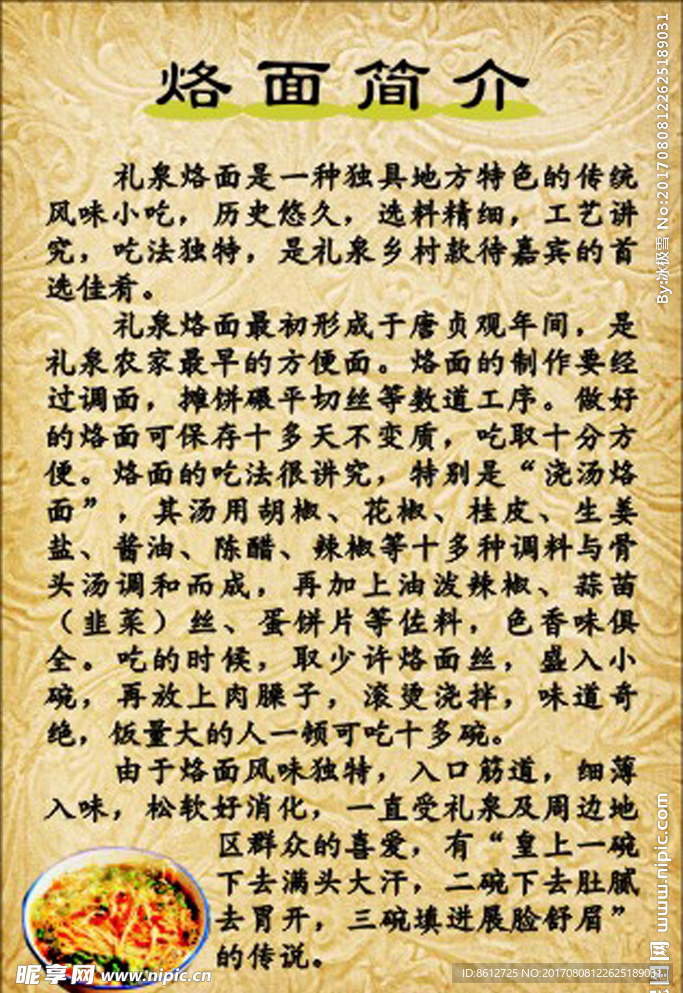 烙面简介
礼泉烙面是一种独具地方特色的传统
风味小吃，历史悠久，选料精细，工艺讲
究，吃法独特，是礼泉乡村款待嘉宾的首
选佳肴。
礼泉烙面最初形成于唐贞观年间，是
礼泉农家最早的方便面。烙面的制作要经
过调面，摊饼碾平切丝等数道工序。做好
的烙面可保存十多天不变质，吃取十分方
便。烙面的吃法很讲究，特别是“浇汤烙
面”，其汤用胡椒、花椒、桂皮、生姜
盐、酱油、陈醋、辣椒等十多种调料与骨
头汤调和而成，再加上油泼辣椒、蒜苗
（韭菜）丝、蛋饼片等佐料，色香味俱
全。吃的时候，取少许烙面丝，盛入小
碗，再放上肉臊子，滚烫浇拌，味道奇
绝，饭量大的人一顿可吃十多碗。
由于烙面风味独特，入口筋道，细薄
入味，松软好消化，一直受礼泉及周边地
区群众的喜爱，有“皇上一碗
下去满头大汗，二碗下去肚腻
去胃开，三碗填进展脸舒眉”
的传说。
昵享网 www.nipic.cn
ID:8612725 NO:20170808122625189031
By:冰极雪 No:20170808122625189031
www.nipic.com